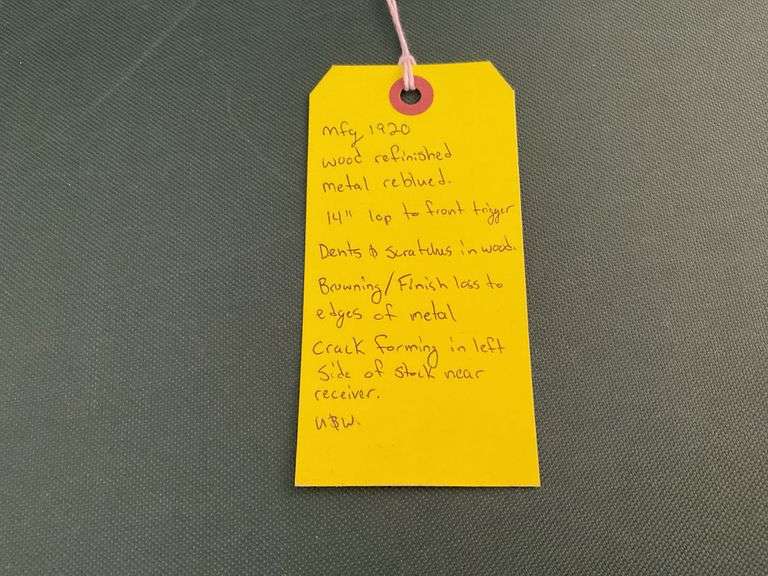 Mfg 1920
wood refinished
metal reblued.
14" lop to front trigger
Dents & Scratches in wood.
Browning/Finish loss to
edges of metal
Crack forming in left
Side of stock near
receiver.
U&W.